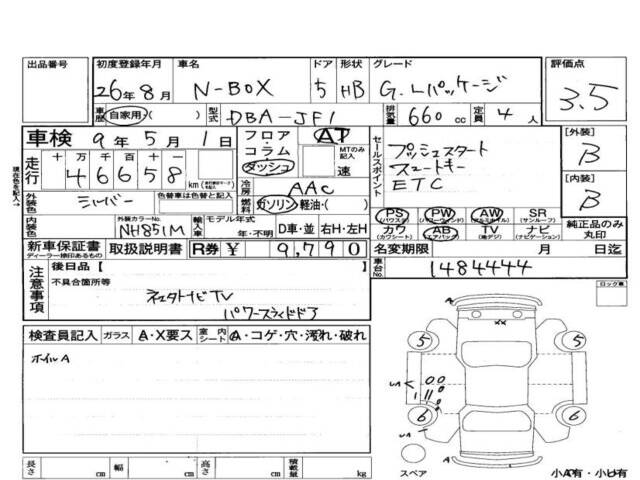 出品番号 初度登録年月 車名 ドア 形状 グレード 評価点
26年8月 N-BOX 5 HB G.Lパッケージ 3.5
車歴 自家用 ( ) 型式 DBA-JF1 排気量 660 cc 定員 4 人
車検 9年5月1日 フロア・コラム・ダッシュ AT MTのみ記入 速
走行 十 万 千 百 十 一
46658 km
冷房 AAC
外装色 シルバー 色替車は色替と記入 燃料 ガソリン・軽油・( )
内装色 外装カラーNo. NH851M 輸入車 モデル年式 年・不明 D車・並 右H・左H
新車保証書 ディーラー捺印あるもの 取扱説明書 R券 ¥ 9,790
セールスポイント
プッシュスタート
スマートキー
ETC
[外装] B
[内装] B
PS (パワステ) PW (パワーウインド) AW (アルミホイル) SR (サンルーフ)
カワ (カワシート) AB (エアバック) TV (地デジ) ナビ (ナビゲーション) 純正品のみ丸印
名変期限 月 日迄
車台No. 1484444
注意事項 後日品【 】
不具合箇所等
パワースライドドア
検査員記入 ガラス A・X要ス 室内シート A・コゲ・穴・汚れ・破れ
ホイルA
ロック車
現在色を記入→
5 5
6 6
スペア
長さ cm 幅 cm 高さ cm 積載量 kg
小A有・小U有